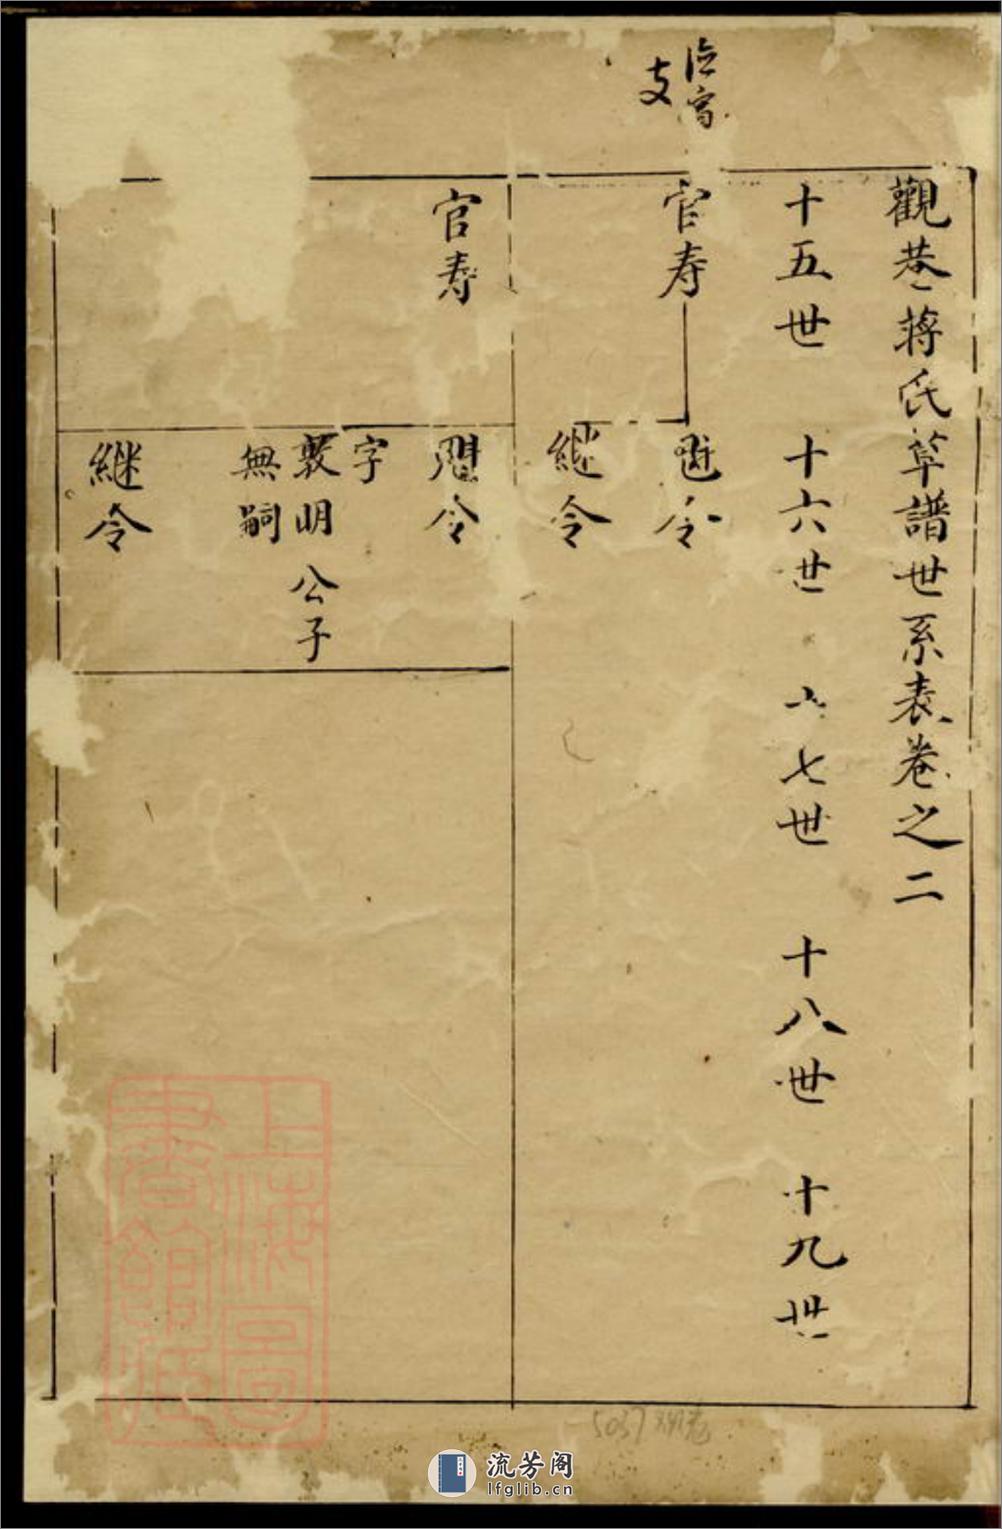 觀巷蔣氏草譜世系表卷之二
十五世 十六世 十七世 十八世 十九世
支
官寿
继令
官寿
令
字
敦明公子
無嗣
继令
上海圖
書館藏
5037
流芳阁
lfglib.cn